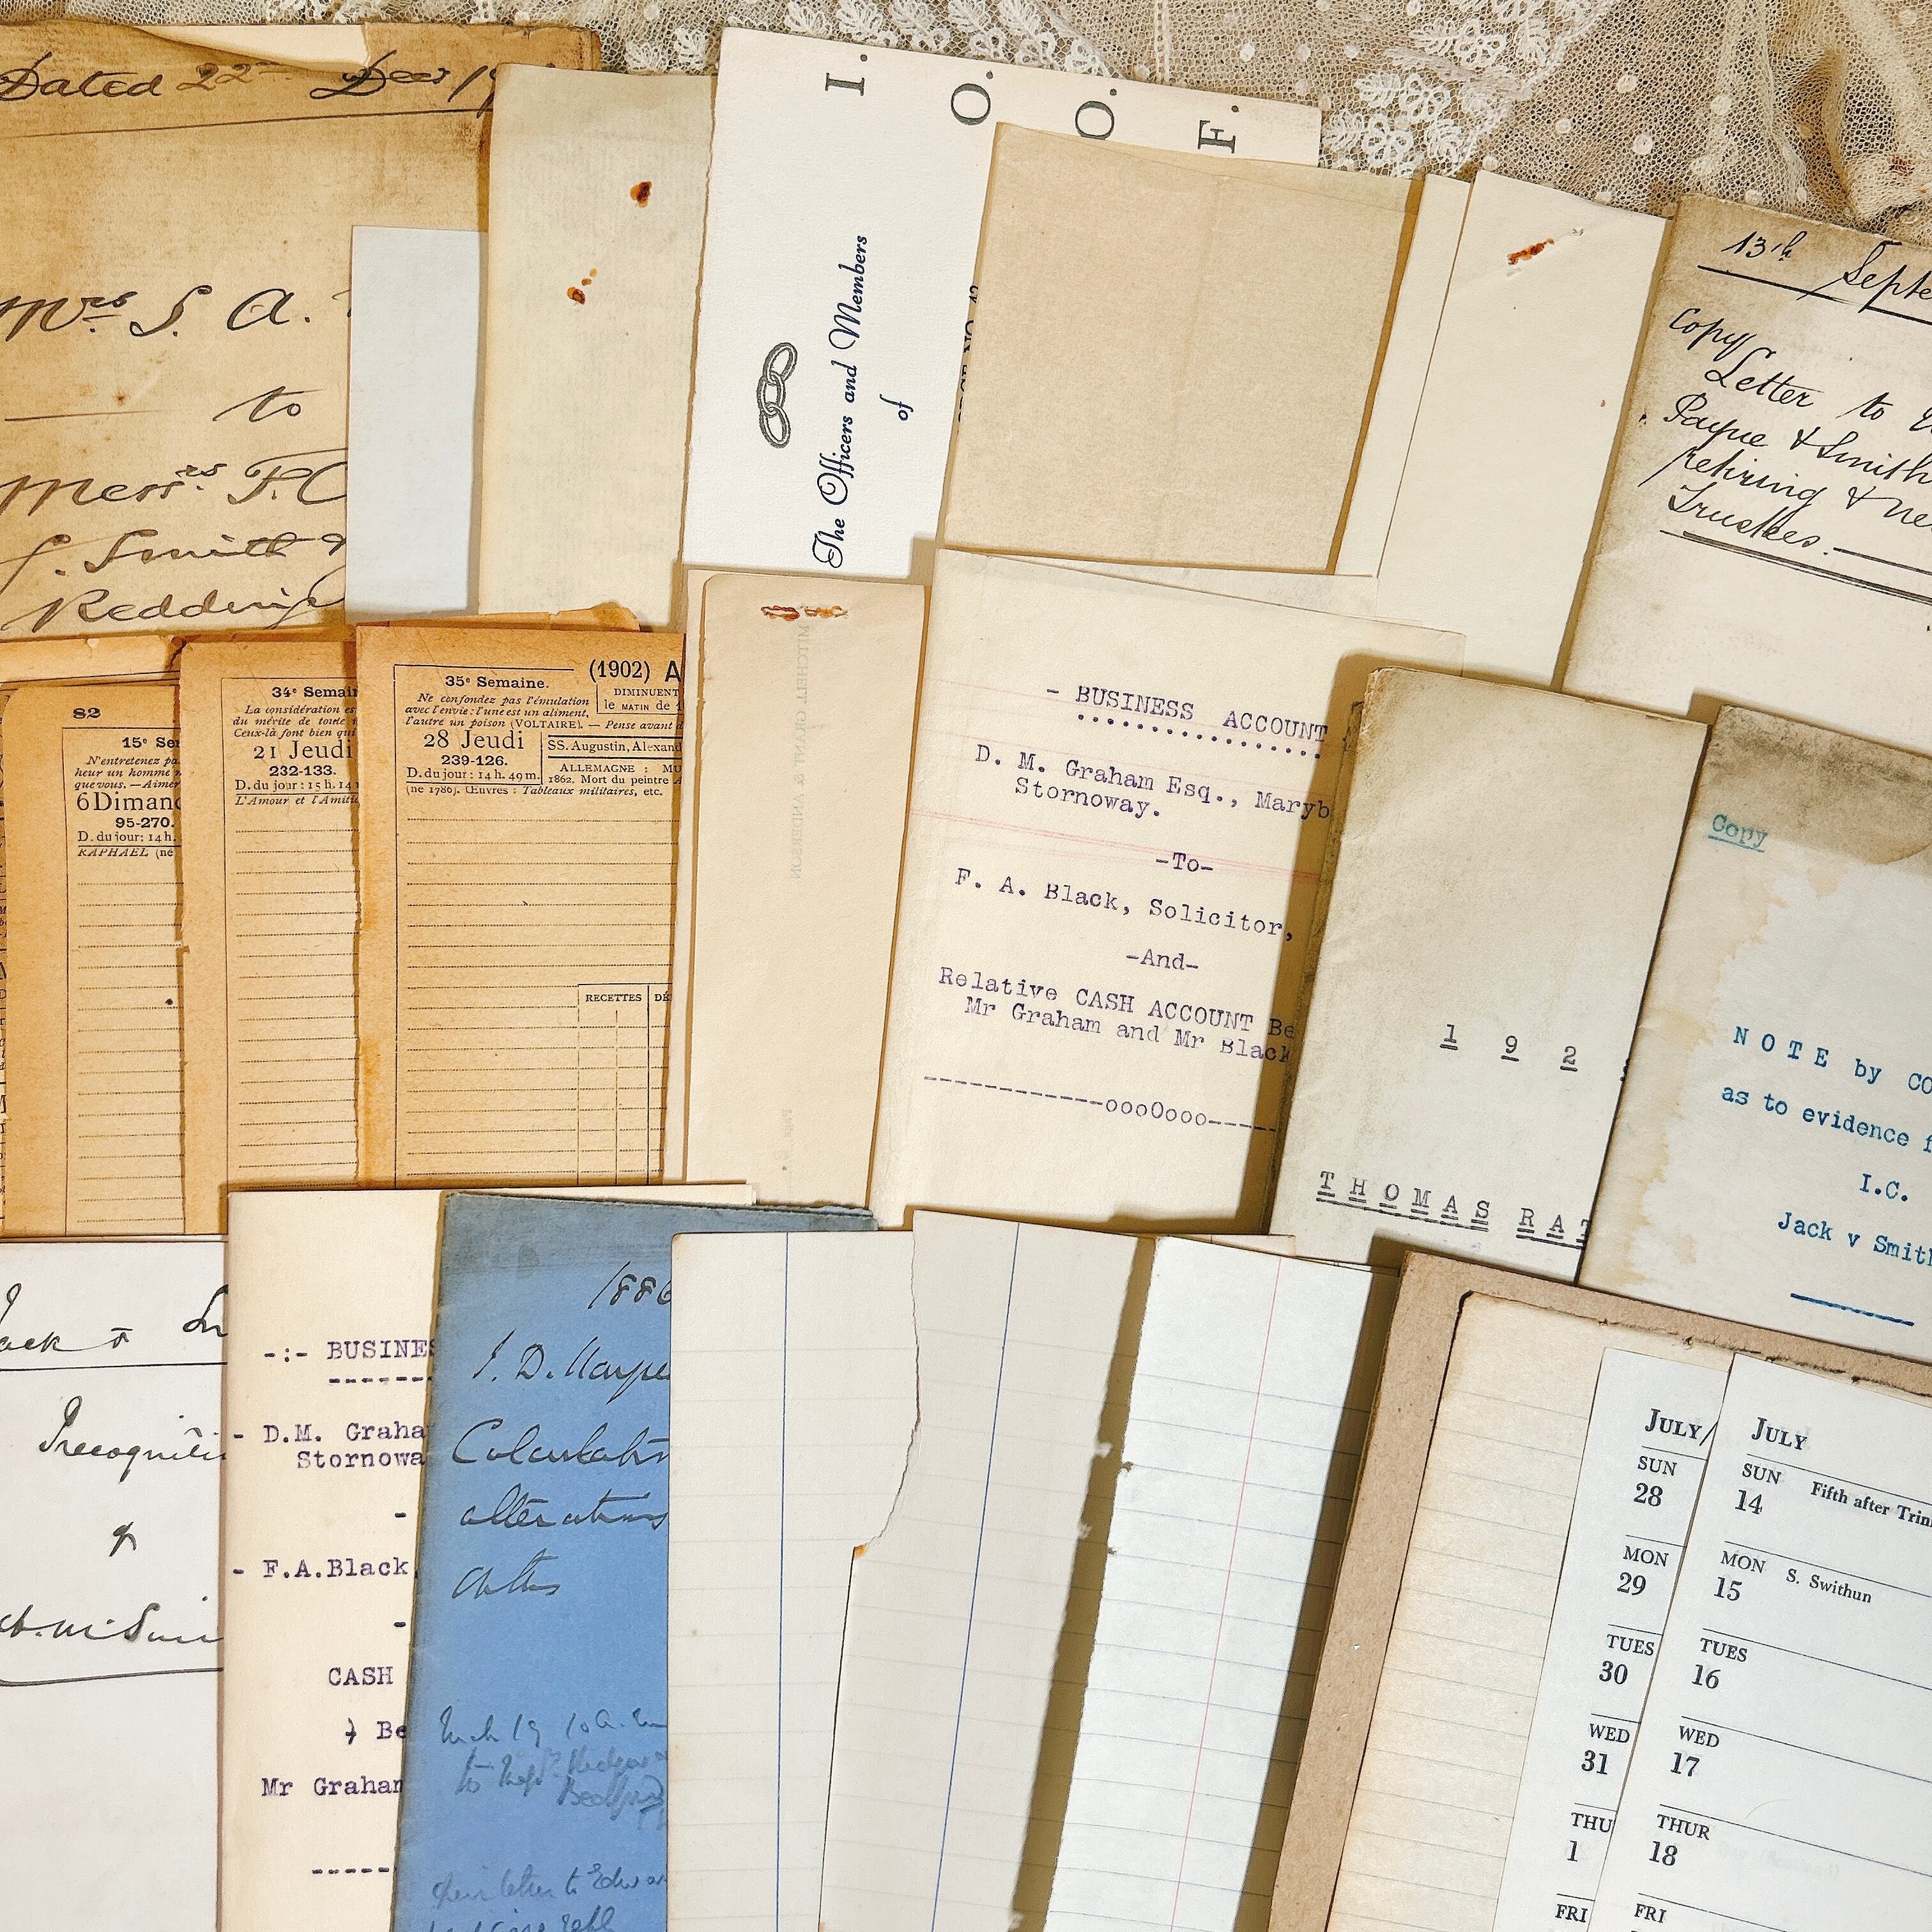 Dated 22nd Decr 19
Mrs S. A.
to
Messrs F. C
J. Smith &
Redding
I. O. O. F.
The Officers and Members
of
13th Septe
Copy
Letter to
Payne & Smith
retiring & ne
Trustees.
82
15e Se
N'entretenez pa
heur un homme
que vous. — Aimer
6 Dimanc
95-270.
D. du jour: 14 h.
RAPHAEL (né
34e Semai
La considération es
du mérite de toute
Ceux-là font bien qui
21 Jeudi
232-133.
D. du jour : 15 h. 14
L'Amour et l'Amiti
(1902) A
35e Semaine.
Ne confondez pas l'émulation
avec l'envie: l'une est un aliment,
l'autre un poison (VOLTAIRE). — Pense avant d
DIMINUENT
le MATIN de
28 Jeudi
239-126.
D. du jour : 14 h. 49 m.
SS. Augustin, Alexand
ALLEMAGNE : MU
1862. Mort du peintre
(né 1786). Œuvres : Tableaux militaires, etc.
RECETTES DÉ
MITCHELL GRANT & ANDERSON
- BUSINESS ACCOUNT
D. M. Graham Esq., Maryb
Stornoway.
-To-
F. A. Black, Solicitor,
-And-
Relative CASH ACCOUNT Be
Mr Graham and Mr Black
-----------oooOooo-----
1 9 2
THOMAS RA
Copy
NOTE by CO
as to evidence f
I.C.
Jack v Smith
Jack v
Precogniti
of
-:- BUSINES
- D.M. Graha
Stornowa
-
- F.A.Black
-
CASH
) Be
Mr Graham
1886
J. D. Harpe
Calculation
alterations
JULY/
SUN
28
MON
29
TUES
30
WED
31
THU
1
FRI
JULY
SUN Fifth after Trin
14
MON S. Swithun
15
TUES
16
WED
17
THUR
18
FRI